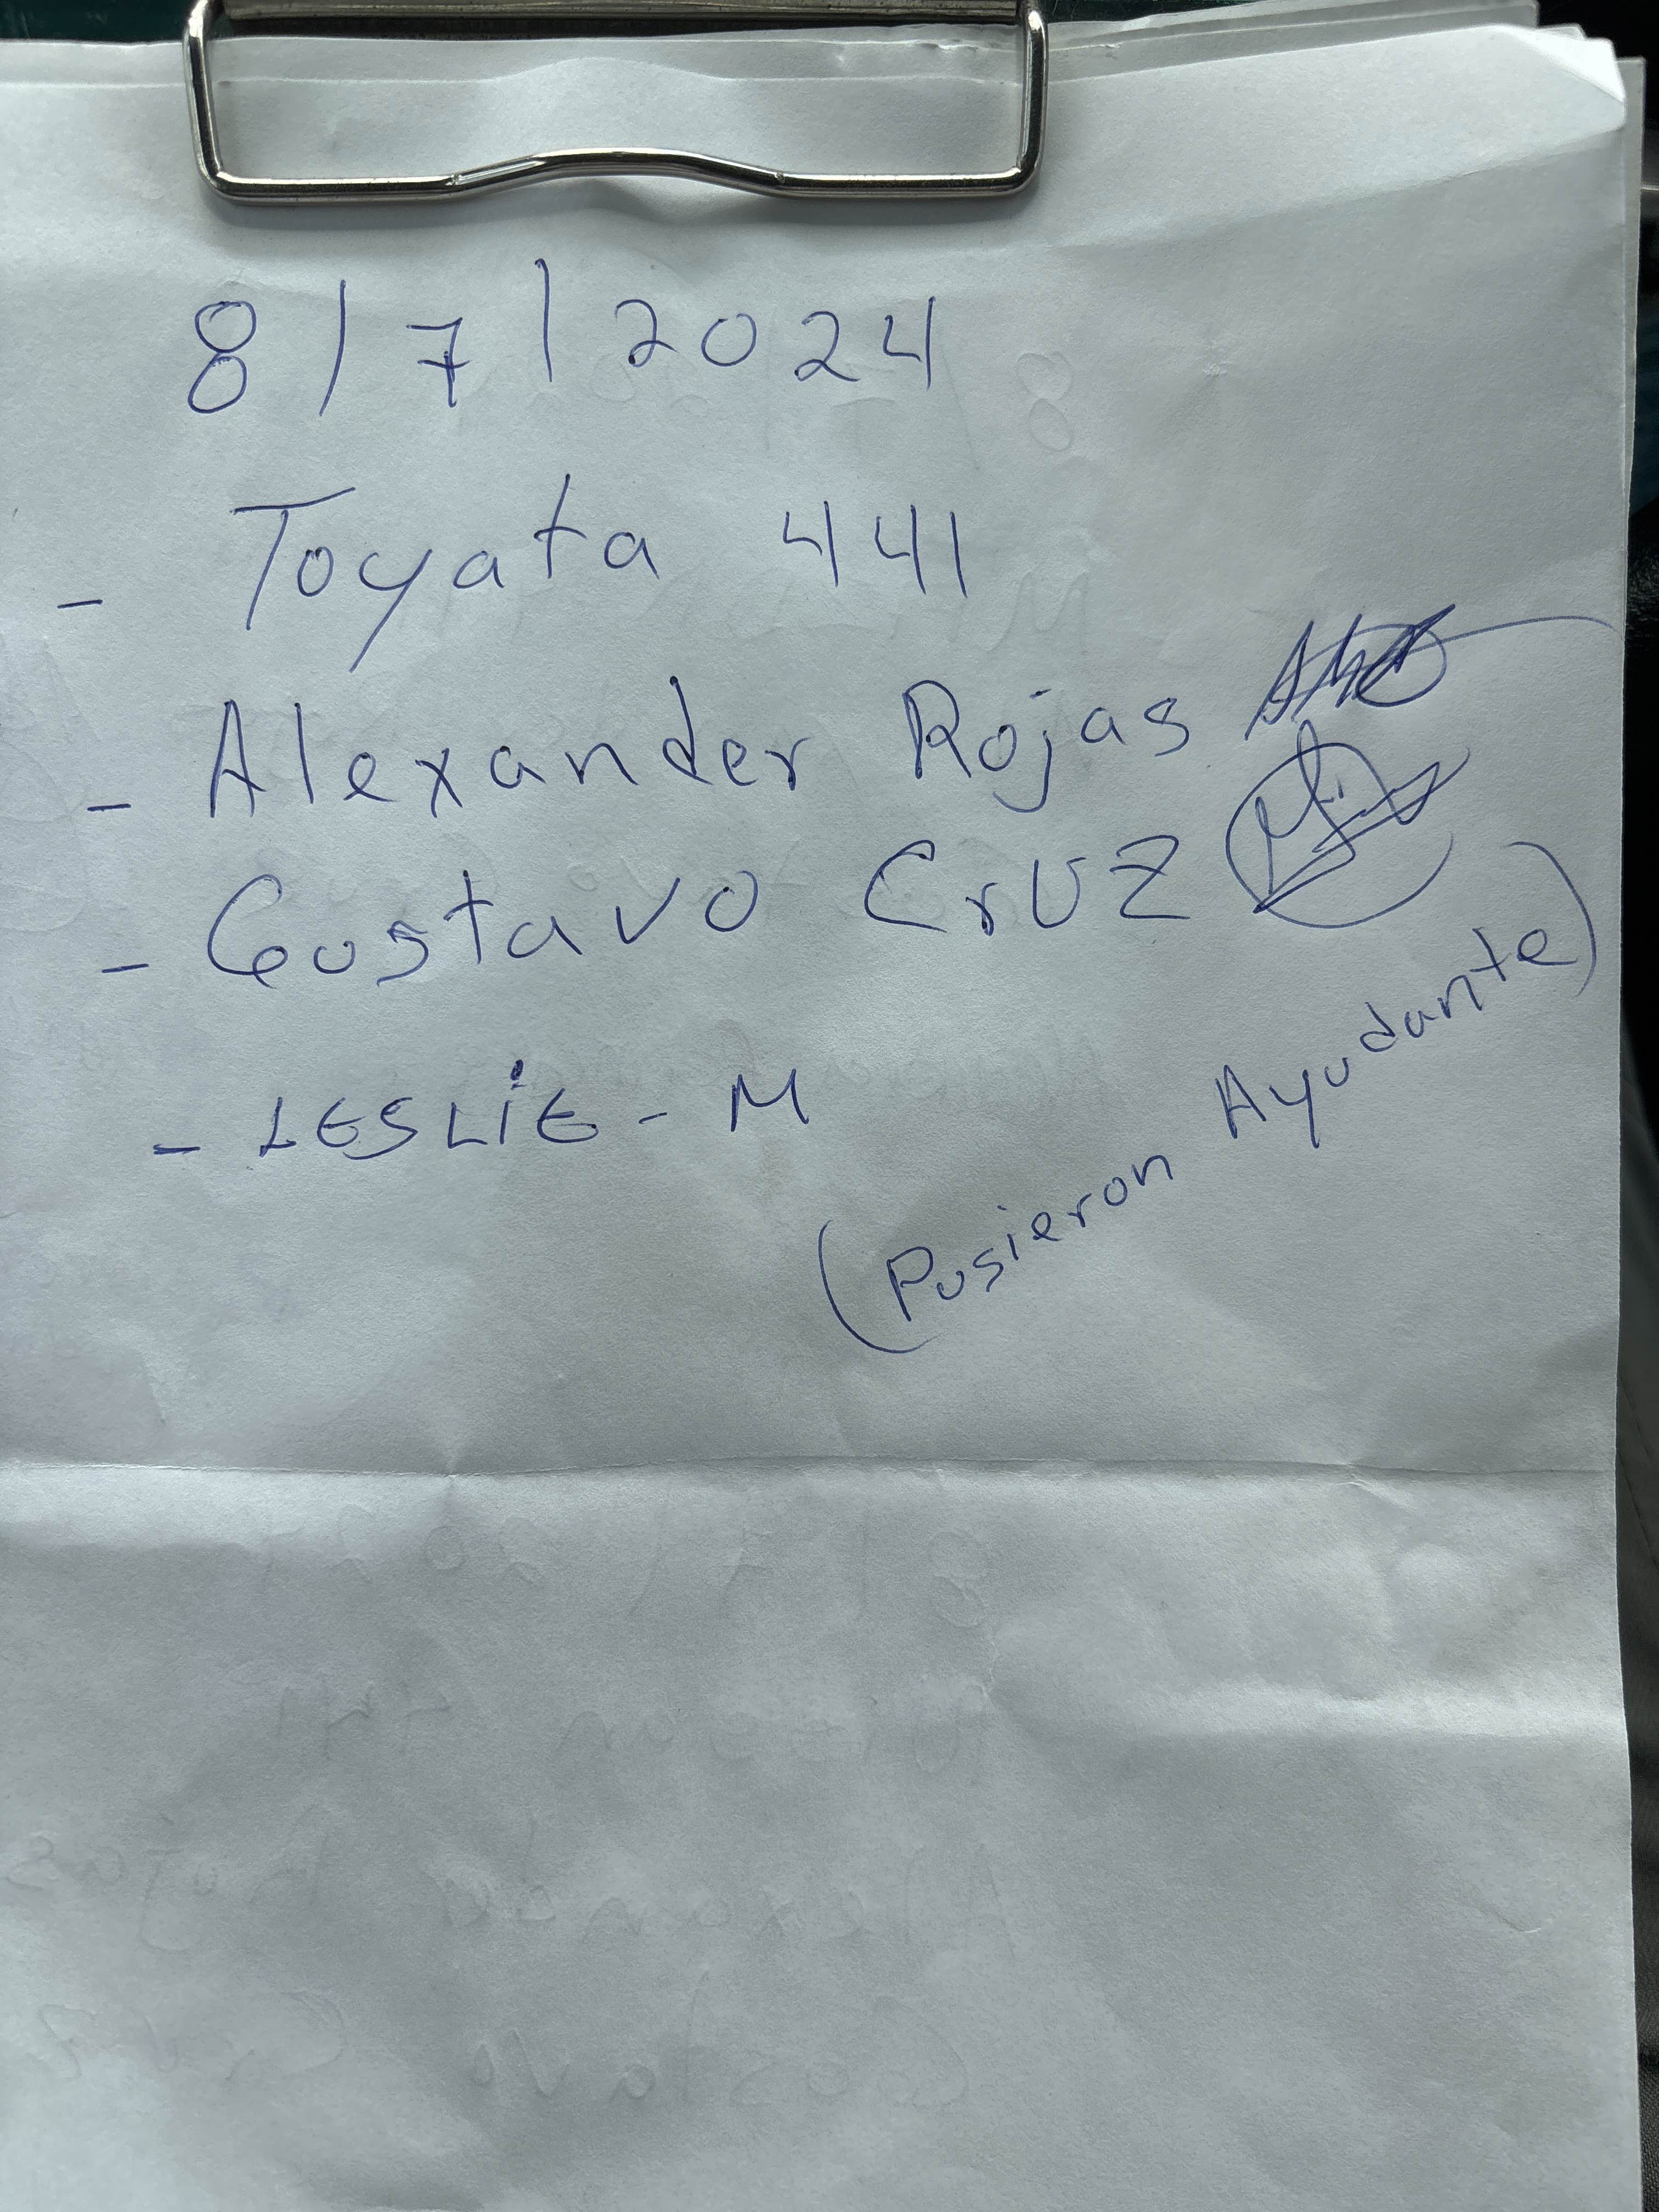 8/7/2024
- Toyata 441
- Alexander Rojas
- Gustavo Cruz
- LESLiE - M
(Pusieron Ayudante)